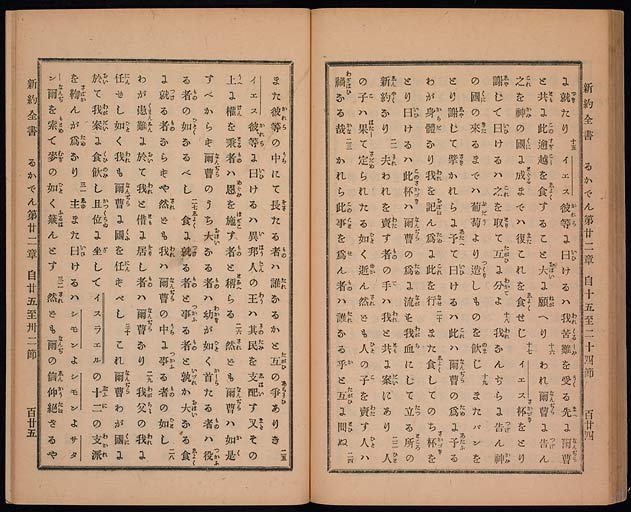 新約全書 るかでん第廿二章 自十五至二十四節 百廿四
よ就たり 十五 イエス彼等よ曰けるハ我苦難を受る先よ爾曹
と共よ此逾越を食することを大よ願へり 十六 われ爾曹よ告ん
之を神の國よ成までハ復これを食せじ 十七 イエス杯をとり
謝して曰けるハ之を取て互よ分よ 十八 我なんぢらよ告ん神
の國の來るまでハ葡萄より造しものを飮じ 十九 またパンを
とり謝して擘かれらよ予て曰けるハ此ハ爾曹の爲よ予る
わが身體なり我を記ん爲よ此を行へ 二十 また食してのち杯を
とり曰けるハ此杯ハ爾曹の爲よ流す我血にして立る所の
新約なり 二一 夫われを賣す者の手ハ我と共よ案にあり 二二 人
の子ハ果て定られたる如く逝ん然とも人の子を賣す人ハ
禍なる哉 二三 かれら此事を爲ん者ハ誰なる乎と互よ問ぬ 二四
また彼等の中にて長たる者ハ誰なるかと互の爭ありき 二五
イエス彼等よ曰けるハ異邦人の王ハ其民を支配す又その
上よ權を秉者ハ恩を施す者と稱らる 二六 然ども爾曹ハ如是
すべからず爾曹のうち大なる者ハ幼が如く首たる者ハ役
る者の如くなるべし 二七 食よ就る者と事る者と孰か大なる食
よ就る者ならずや然ども我ハ爾曹の中よ事る者の如し 二八
わが患難よ於て我と偕よ居し者ハ爾曹なり 二九 我父の我よ
任せし如く我も爾曹よ國を任ずべし 三十 これ爾曹わが國よ
於て我案よ食飮し且位よ坐してイスラエルの十二の支派
を鞫んが爲なり 三一 主また曰けるハシモンよシモンよサタ
ン爾曹を索て麥の如く簸んとす 三二 然ども爾の信仰絕ざるや
新約全書 るかでん第廿二章 自廿五至卅二節 百廿五